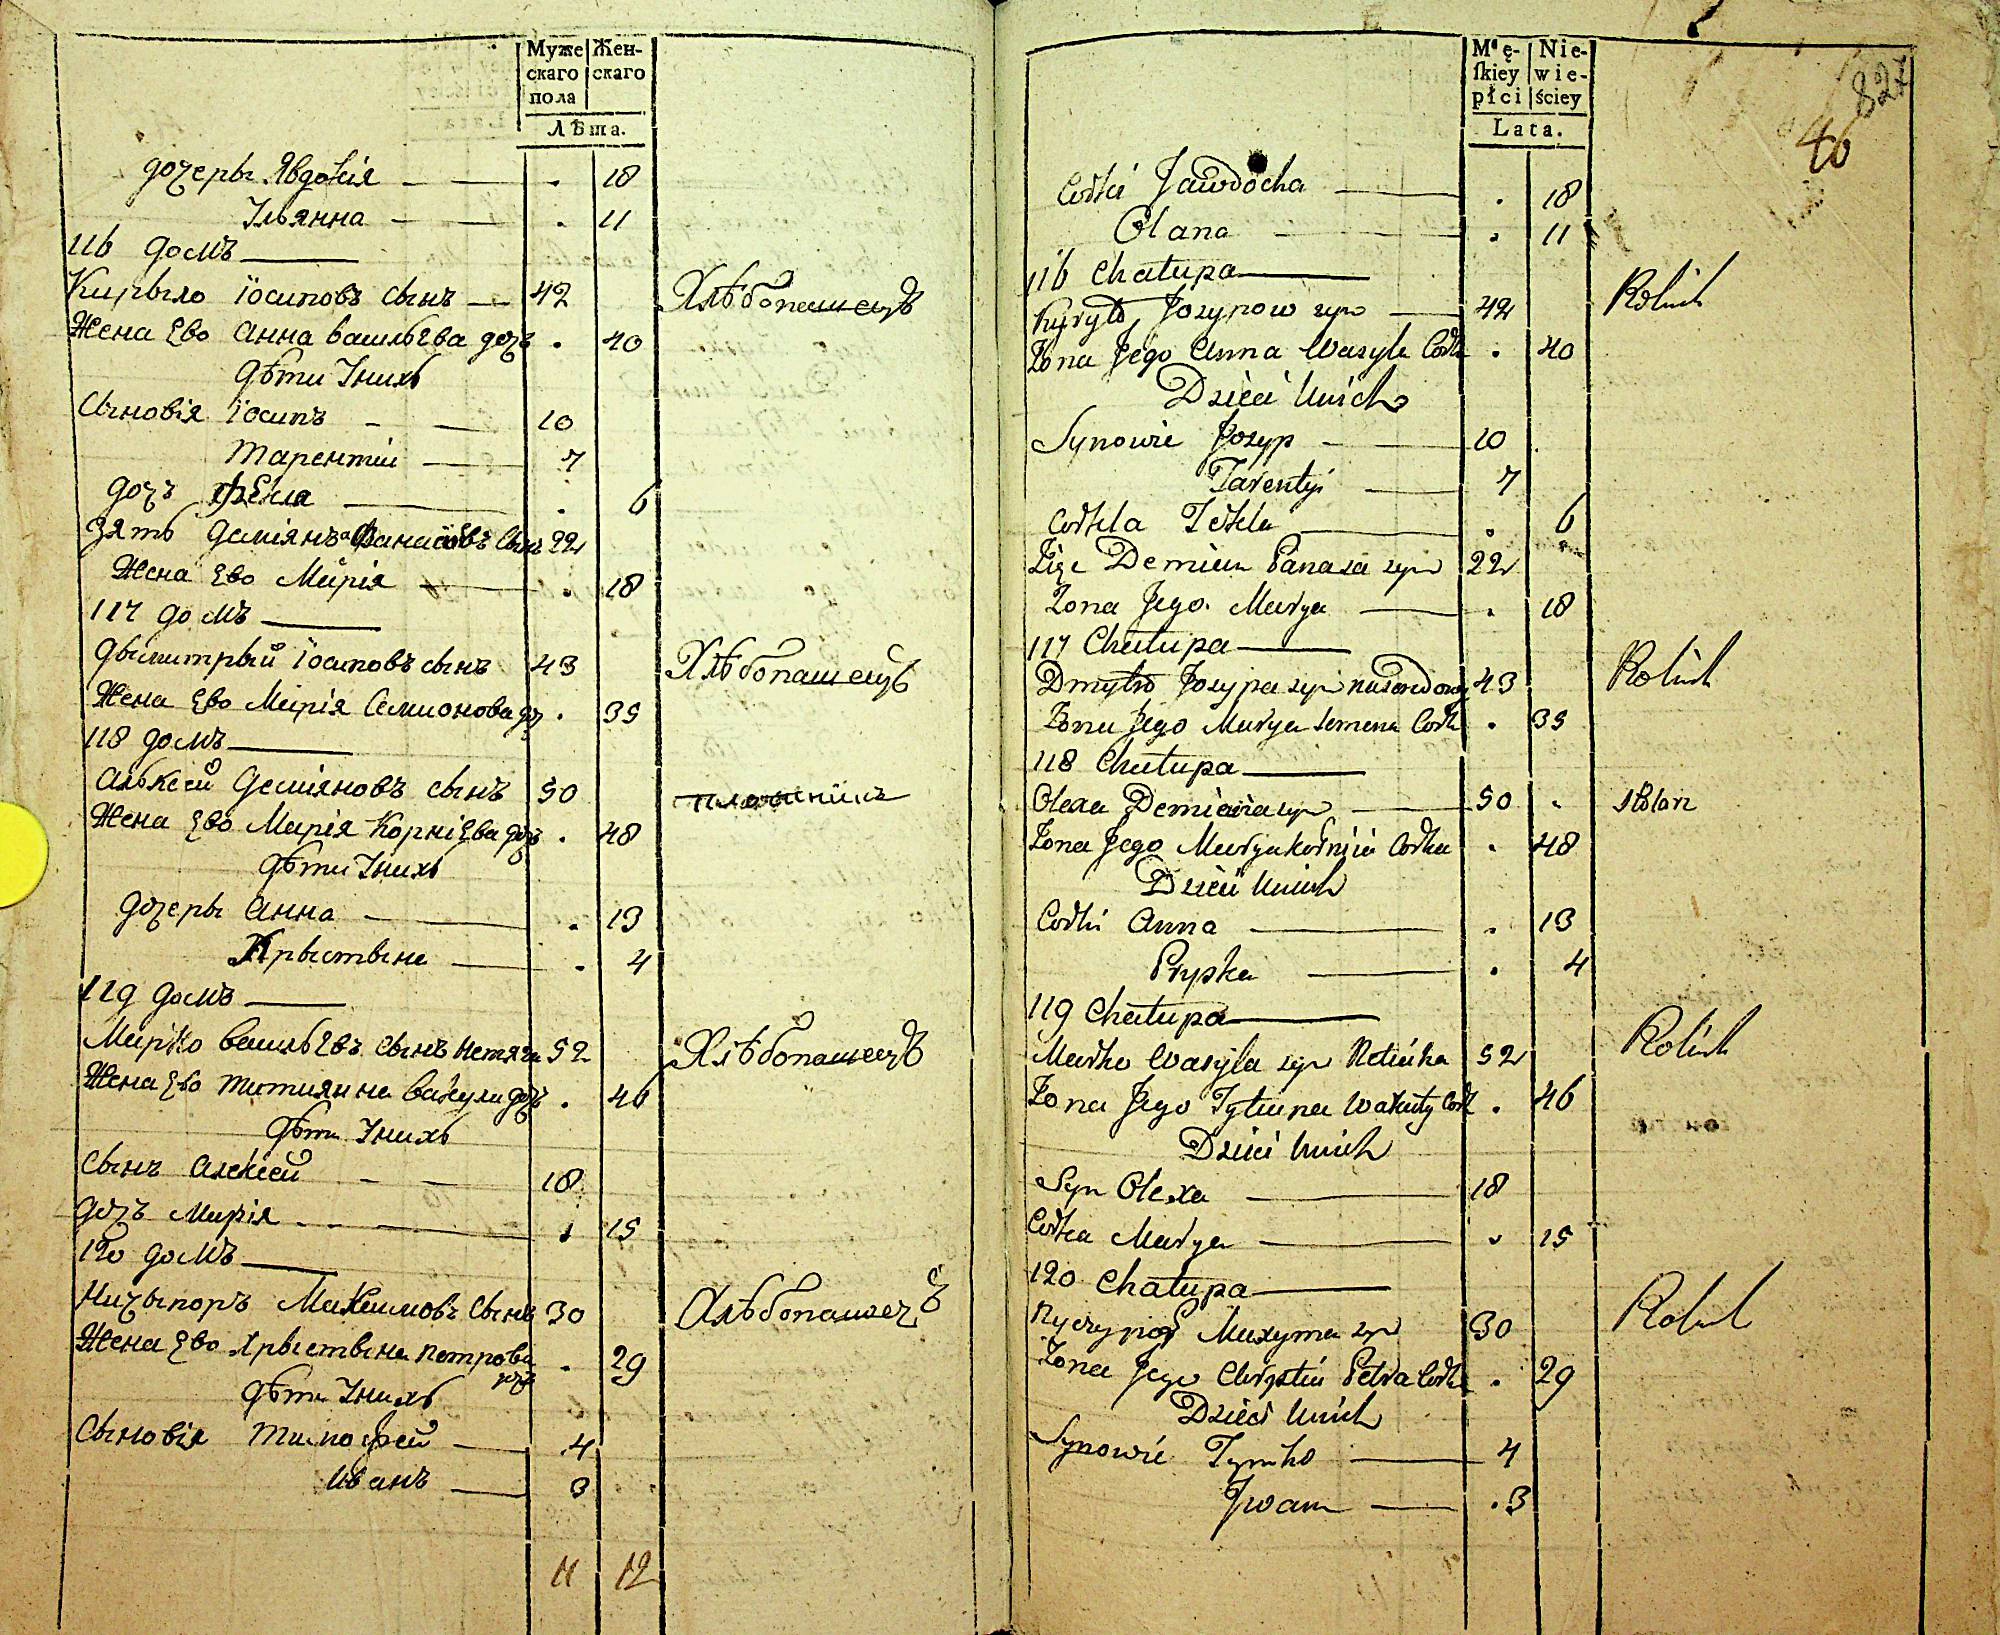 Муже
скаго
пола
Жен-
скаго
Лѣта.
дочеры Явдокія — . 18
Ульянна — . 11
116 домъ
Кирыло Іосиповъ сынъ — 42 Хлѣбопашецъ
Жена Ево Анна Васильева дочъ . 40
Дѣти Унихъ
Сыновія Іосипъ — 10
Тарентій — 7
дочъ Фекла — . 6
Зять Деміянъ Фанасовъ сынъ 22
Жена Ево Марія — . 18
117 домъ
Дымитрый Іосиповъ сынъ 43 Хлѣбопашецъ
Жена Ево Марія Семионова дч . 35
118 домъ
Алѣксей Деміяновъ сынъ 50 плотникъ
Жена Ево Марія Корніева дочъ . 48
Дѣти Унихъ
дочеры Анна — . 13
Хрыстына — . 4
119 домъ
Марко Васильевъ сынъ Нетяга 52 Хлѣбопашецъ
Жена Ево Татиянна Вакули дочъ . 46
Дѣти Унихъ
Сынъ Алексей — 18
дочъ Марія — . 15
120 домъ
Ничыпоръ Максимовъ Сынъ 30 Хлѣбопашецъ
Жена Ево Хрыстына Петрова дочъ . 29
Дѣти Унихъ
Сыновія Тимофей — 4
Иванъ — 3
11 12
Mę-
ſkiey
płci
Nie-
wie-
ściey
Lata.
827
46
Corki Jawdocha — . 18
Olana — . 11
116 Chałupa
Kyryło Jozypow syn — 42 Rolnik
Żona Jego Anna Wasyla Corka . 40
Dzieci Unich
Synowie Jozyp — 10
Tarentyi — 7
Corka Tekla — . 6
Zięc Demian Panasa syn 22
Zona Jego Marya — . 18
117 Chałupa
Dmytro Jozypa syn 43 Rolnik
Żona Jego Marya Semena Cork . 35
118 Chałupa
Olexa Demiana syn — 50 . stolarz
Żona Jego Marya Kornija Corka . 48
Dzieci Unich
Corki Anna — . 13
Prypka — . 4
119 Chałupa
Marko Wasyla syn Netiaha 52 Rolnik
Żona Jego Tytiana Wakuły Cork . 46
Dzieci Unich
Syn Olexa — 18
Corka Marya — . 15
120 Chałupa
Nyczypor Maxyma syn 30 Rolnik
Żona Jego Chrystia Petra Corka . 29
Dzieci Unich
Synowie Tymko — 4
Jwan — . 3